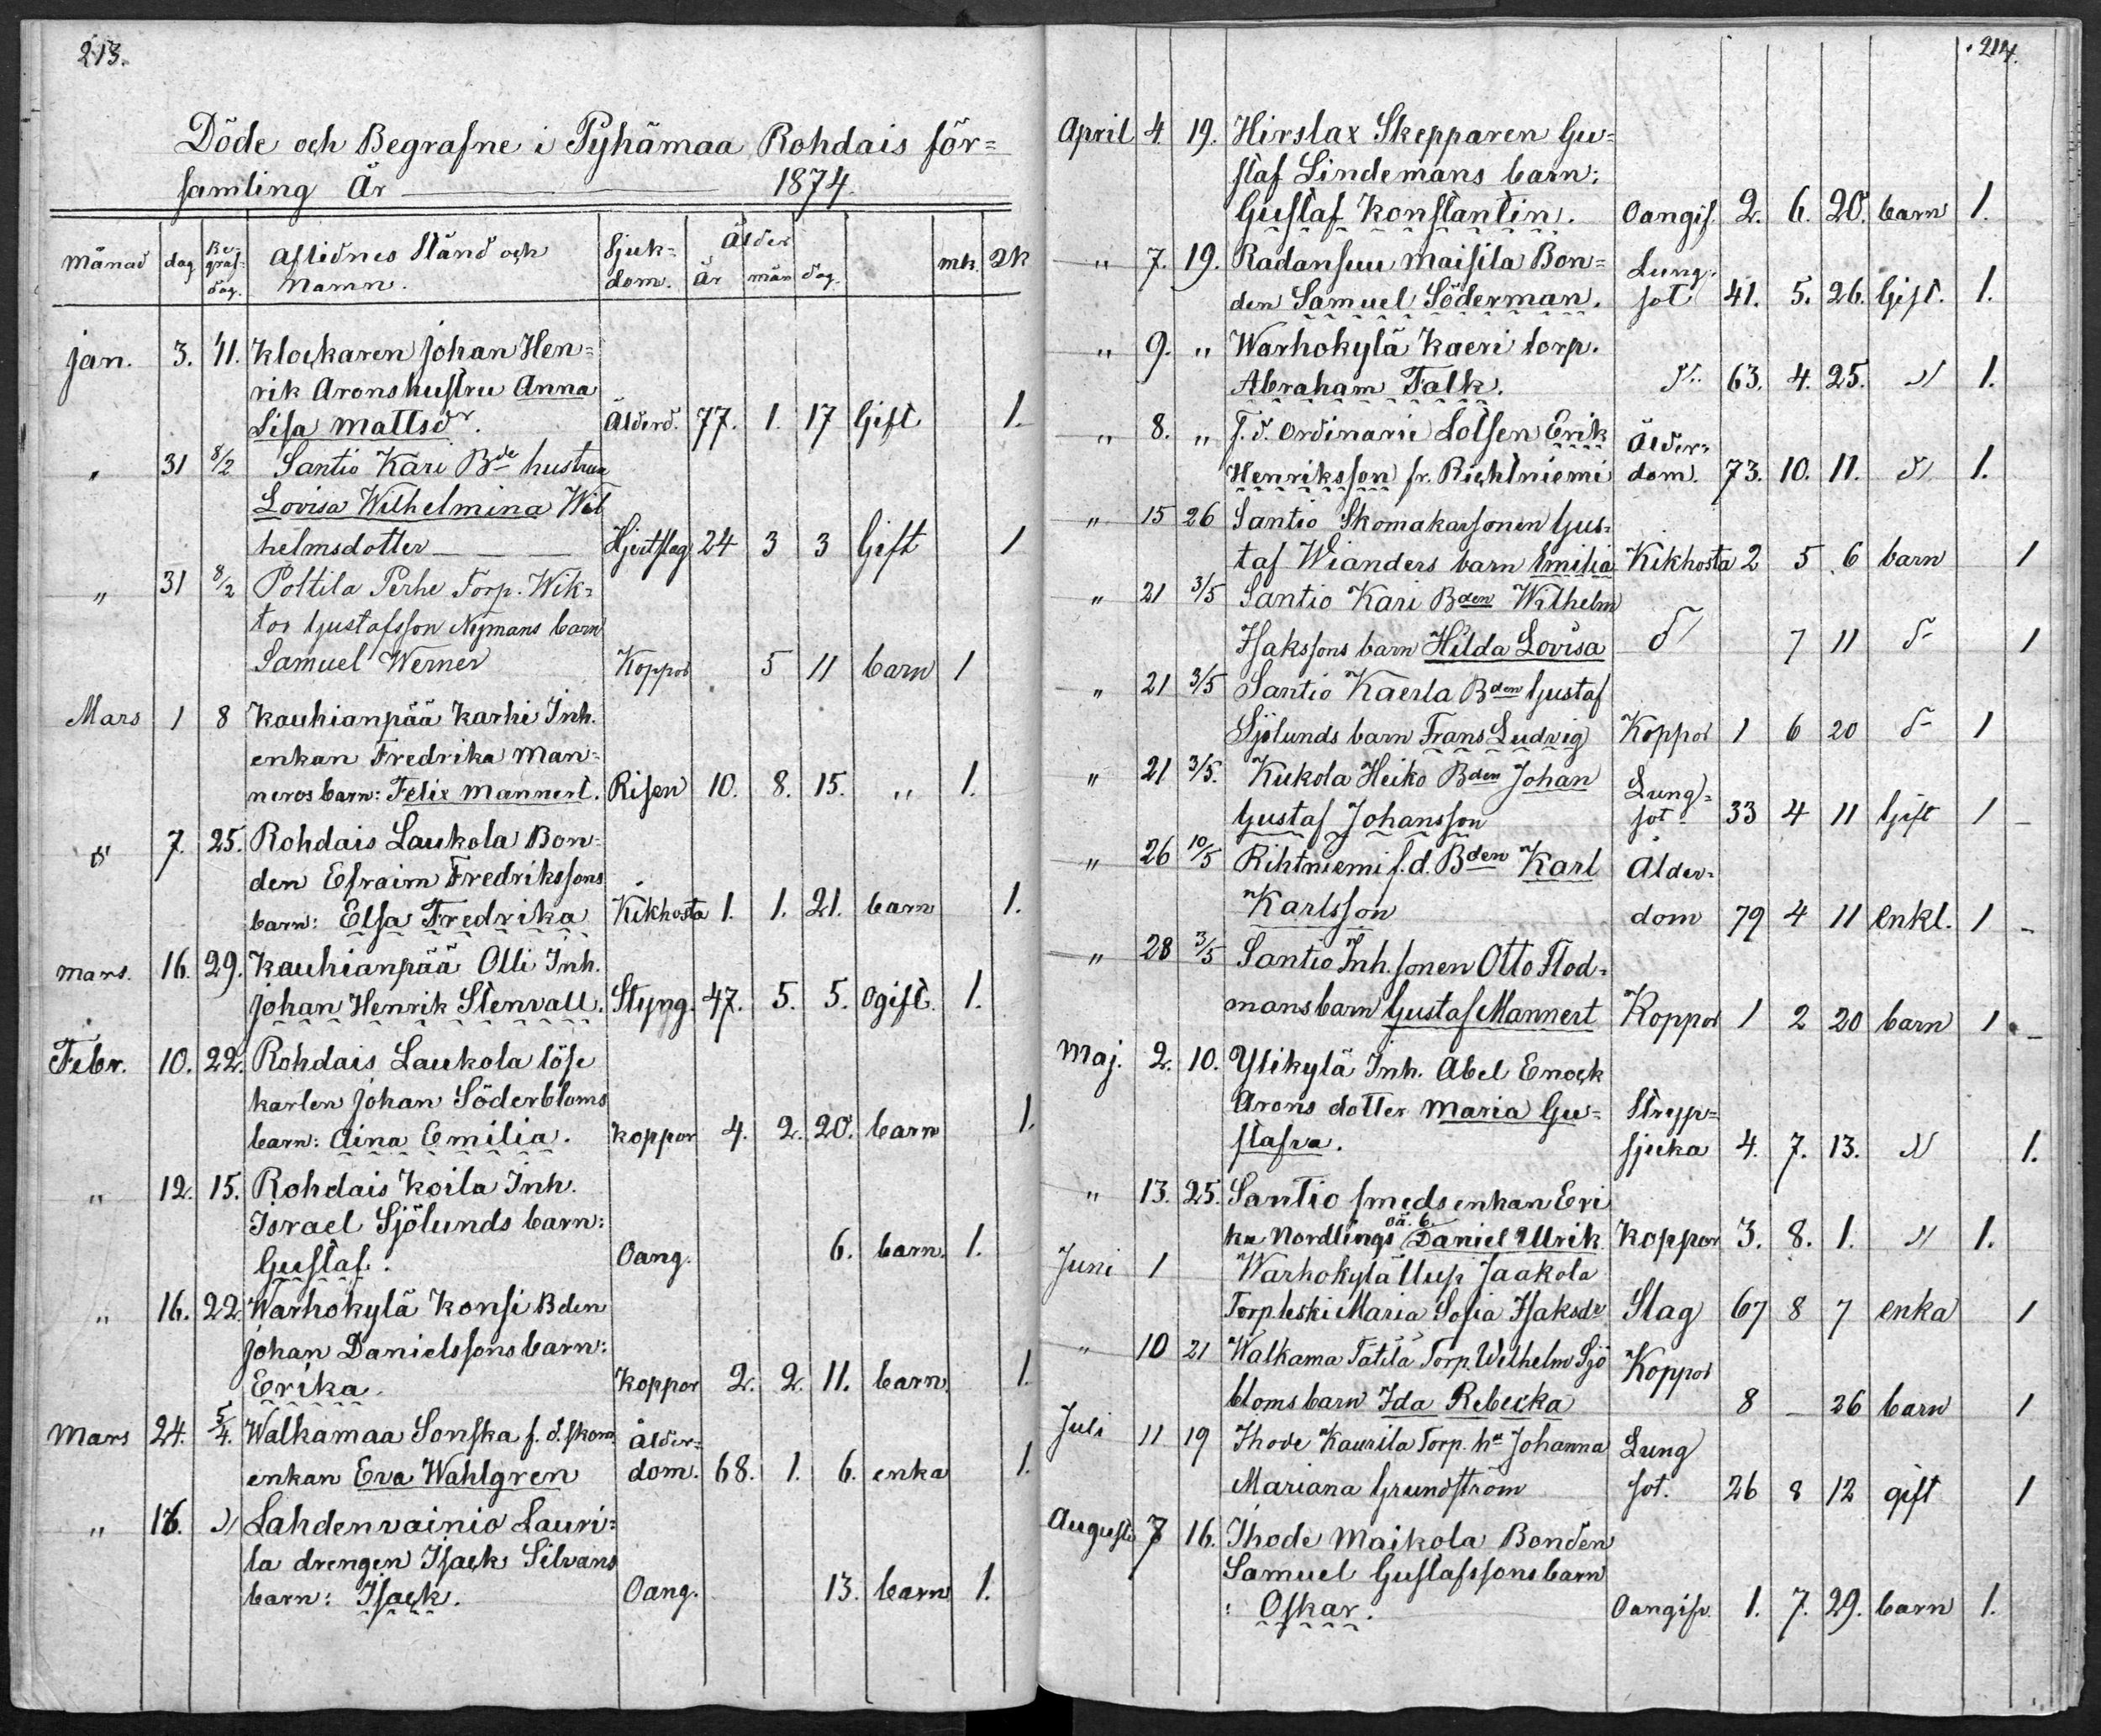 213.
Döde och Begrafne i Pyhämaa Rohdais för=
samling År 1874.
Månad dag Be-graf-dag. Aflidnes Stånd och Namn. Sjuk-dom. Ålder År mån dag. mk. Qk
Jan. 3. 11. Klockaren Johan Hen=
rik Arons hustru Anna
Lisa Mattsdr. Ålderd. 77. 1. 17 Gift. 1.
" 31 8/2 Santio Kari Bde hustru
Lovisa Wilhelmina Wil
helmsdotter Hjertslag 24 3 3 Gift 1
" 31 8/2 Poltila Perhe Torp. Wik=
tor Gustafsson Nymans barn
Samuel Werner Koppor 5 11 barn 1
Mars 1 8 Kauhianpää Karhi Inh.
enkan Fredrika Man=
neros barn: Felix Mannert. Risen 10. 8. 15. " 1.
d 7. 25. Rohdais Laukola Bon=
den Efraim Fredrikssons
barn: Elsa Fredrika Kikhosta 1. 1. 21. barn 1.
Mars. 16. 29. Kauhianpää Olli Inh.
Johan Henrik Stenvall. Styng. 47. 5. 5. Ogift. 1.
Febr. 10. 22. Rohdais Laukola löse
karlen Johan Söderbloms
barn: Aina Emilia. Koppor 4. 2. 20. barn 1.
" 12. 15. Rohdais Koila Inh.
Israel Sjölunds barn:
Gustaf. Oang. 6. barn. 1.
" 16. 22. Warhokylä Konsi Bden
Johan Danielssons barn:
Erika. Koppor 2. 2. 11. barn. 1.
Mars 24. 5/4. Walkamaa Sonska f. d. skom.
enkan Eva Wahlgren Ålder=dom. 68. 1. 6. enka 1.
" 16. d Lahdenvainio Lauri=
la drengen Isack Silvans
barn: Isack. Oang. 13. barn 1.
214.
April 4. 19. Hirslax Skepparen Gu=
staf Lindemans barn:
Gustaf Konstantin. Oangif. 2. 6. 20. barn 1.
" 7. 19. Radansuu Maisila Bon=
den Samuel Söderman. Lung-sot 41. 5. 26. Gift. 1.
" 9. " Warhokylä Kaeri torp.
Abraham Falk. d:o 63. 4. 25. d 1.
" 8. " f. d. Ordinarie Lotsen Erik
Henriksson fr. Richtniemi Ålder=dom. 73. 10. 11. d 1.
" 15 26 Santio Skomakarsonen Gus=
taf Wianders barn Emilia Kikhosta 2 5 6 barn 1
" 21 3/5 Santio Kari Bden Wilhelm
Isakssons barn Hilda Lovisa d 7 11 d 1
" 21 3/5 Santio Kaerla Bden Gustaf
Sjölunds barn Frans Ludvig Koppor 1 6 20 d 1
" 21 3/5. Kukola Heiko Bden Johan
Gustaf Johansson Lung=sot 33 4 11 Gift 1 -
" 26 10/5 Rihtniemi f. d. Bden Karl
Karlsson Ålder=dom 79 4 11 Enkl. 1 -
" 28 3/5 Santio Inh. sonen Otto Flod=
mans barn Gustaf Mannert Koppor 1 2 20 barn 1 -
Maj. 2. 10. Ylikylä Inh. Abel Enock
Arons dotter Maria Gu=
stafva. Stryp=sjuka 4. 7. 13. d 1.
" 13. 25. Santio smeds enkan Eri
ka Nordlings oä. b. Daniel Ulrik Koppor 3. 8. 1. d 1.
Juni 1 Warhokylä Uusi Jaakola
Torpleski Maria Sofia Isaksdr Slag 67 8 7 enka 1
" 10 21 Walkama Tätilä Torp. Wilhelm Sjö
bloms barn Ida Rebecka Koppor 8 - 26 barn 1
Juli 11 19 Ihode Kaurila Torp. hu Johanna
Mariana Grundström Lung sot. 26 8 12 gift 1
Augusti 7 16. Ihode Maikola Bonden
Samuel Gustafssons barn
: Oskar. Oangifv. 1. 7. 29. barn 1.